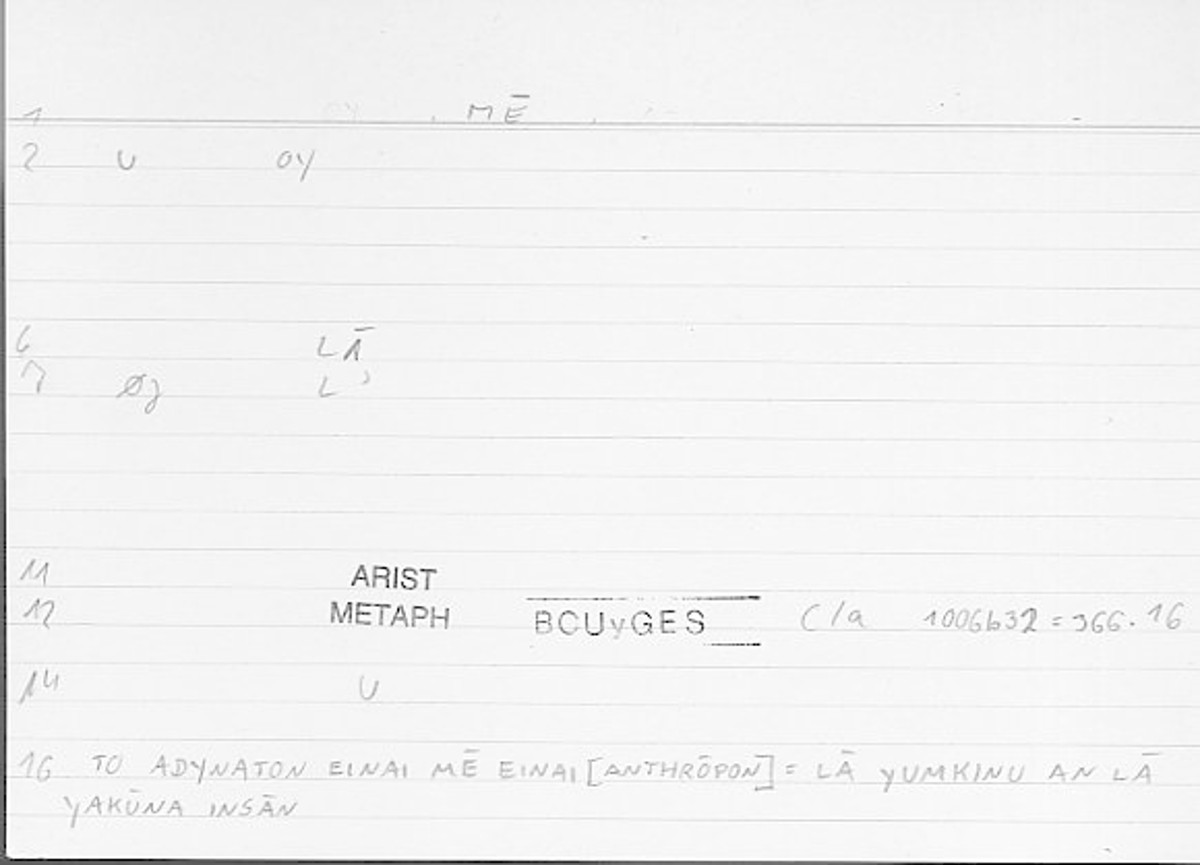 1 MĒ
2 U OY
6 LĀ
7 Øj L'
11 ARIST
12 METAPH BCUyGES C/a 1006b32 = 366.16
14 U
16 TO ADYNATON EINAI MĒ EINAI [ANTHRŌPON] = LĀ YUMKINU AN LĀ
YAKŪNA INSĀN